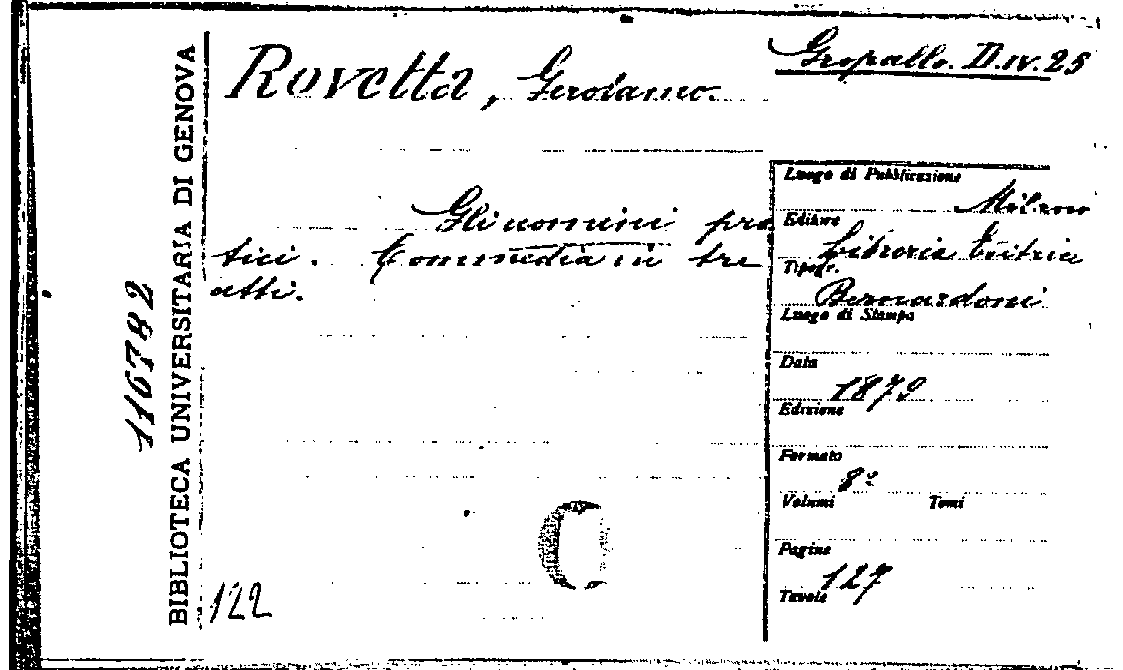 Gropallo. D.IV.25
Rovetta, Gerolamo.
Gli uomini pra
tici. Commedia in tre
atti.
Luogo di Pubblicazione
Milano
Editore
Libreria Editrice
Tipogr.
Bernardoni
Luogo di Stampa
Data
1879
Edizione
Formato
8º
Volumi Tomi
Pagine
127
Tavole
122
BIBLIOTECA UNIVERSITARIA DI GENOVA
116782
C